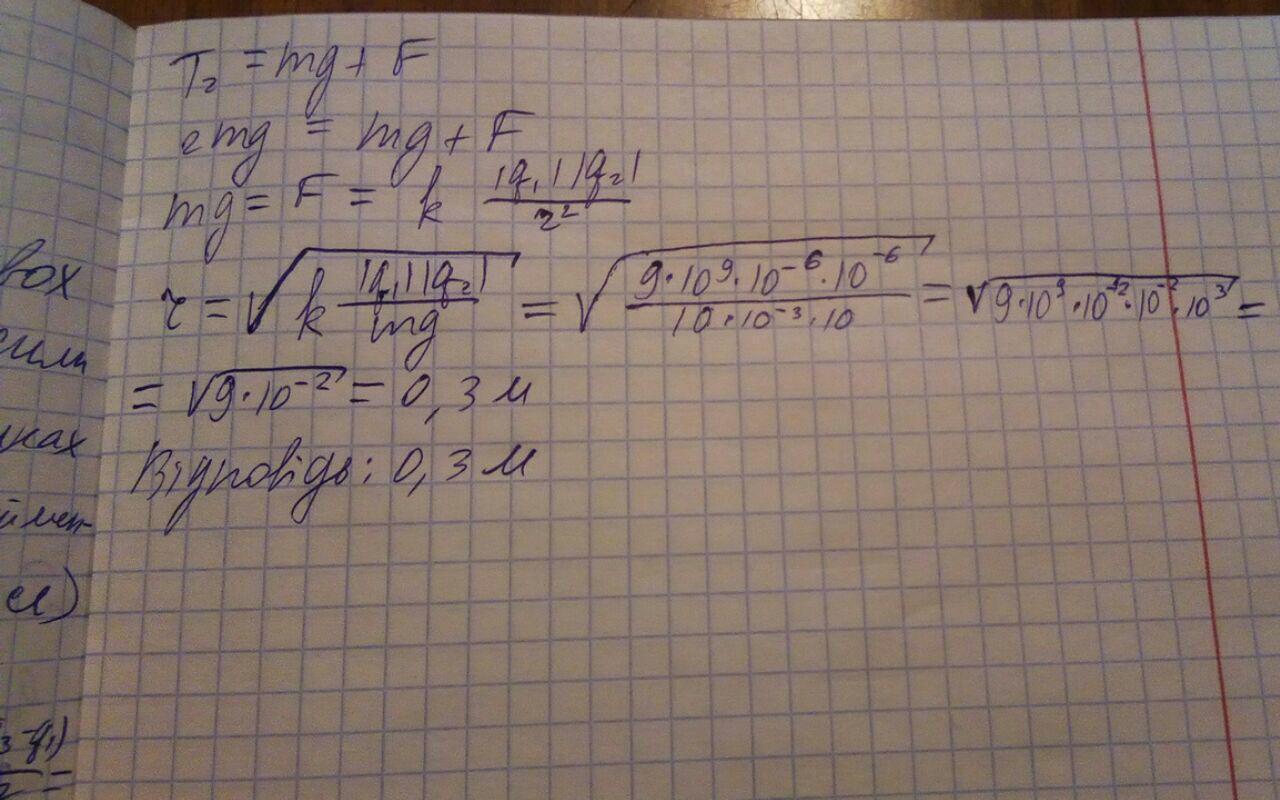 T₂ = mg + F
2mg = mg + F
mg = F = k |q₁||q₂| / r²
r = √(k |q₁||q₂| / mg) = √(9·10⁹·10⁻⁶·10⁻⁶ / 10·10⁻³·10) = √(9·10⁹·10⁻¹²·10⁻²·10³) =
= √(9·10⁻²) = 0,3 м
Відповідь: 0,3 м
вох
сили
ках
см)